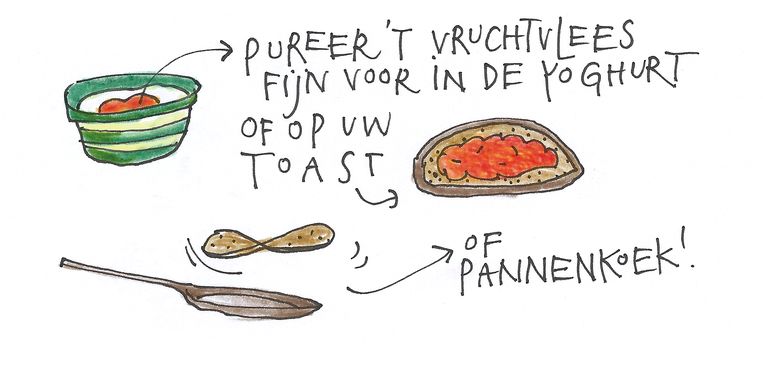 PUREER 'T VRUCHTVLEES
FIJN VOOR IN DE YOGHURT
OF OP UW
TOAST
OF
PANNENKOEK!